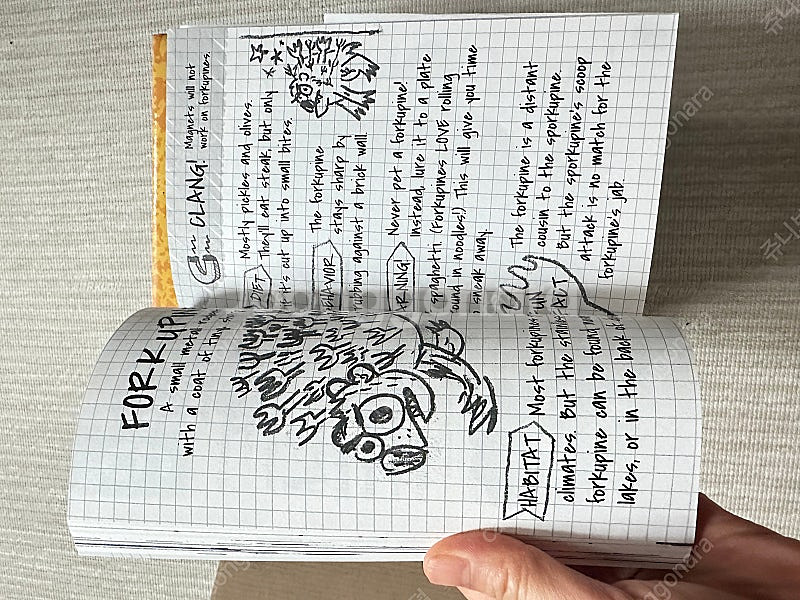 FORKUPI
A small metal
with a coat of tiny
HABITAT Most forkupine
climates. But the
forkupine can be found
lakes, or in the back of
CLANG! Magnets will not
work on forkupines.
DIET Mostly pickles and olives.
They'll eat steak, but only
if it's cut up into small bites.
EHAVIOR The forkupine
stays sharp by
rubbing against a brick wall.
RNING! Never pet a forkupine!
Instead, lure it to a plate
spaghetti (forkupines LOVE rolling
ound in noodles!) This will give you time
sneak away.
UN FACT The forkupine is a distant
cousin to the sporkupine.
But the sporkupine's scoop
attack is no match for the
forkupine's jab.